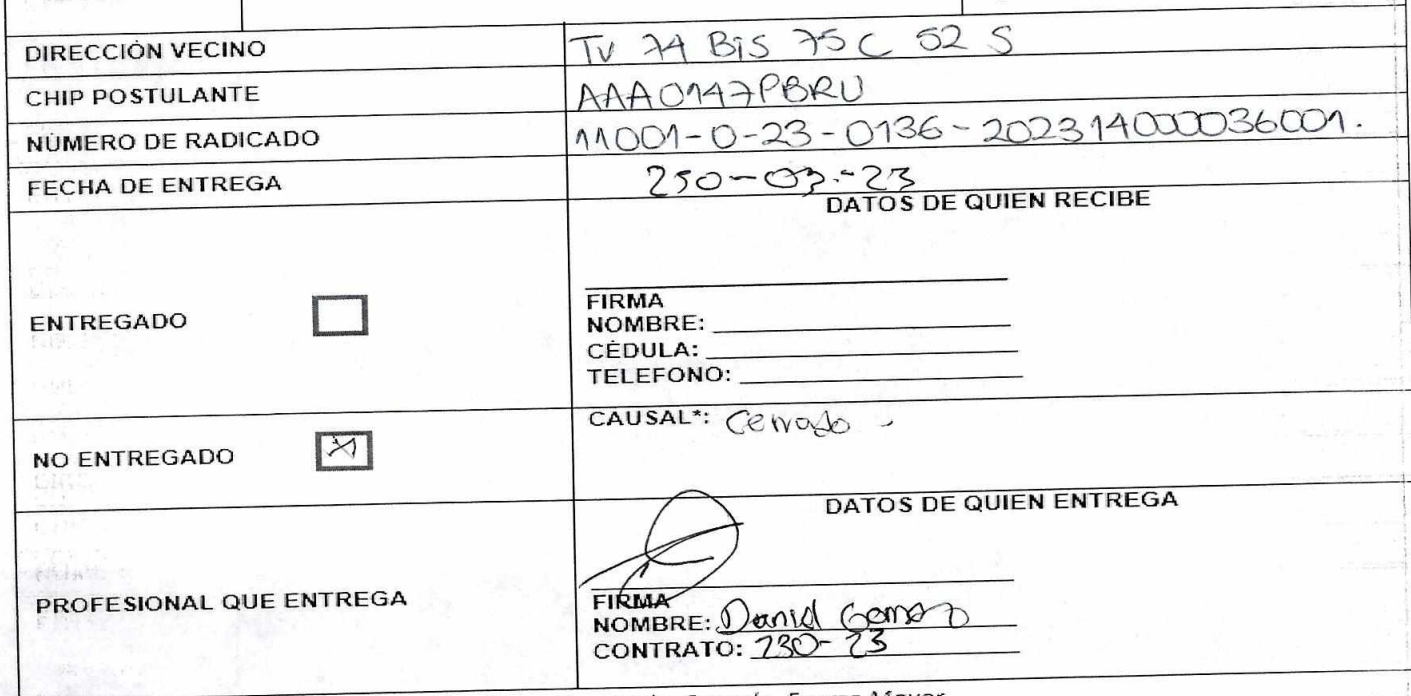 DIRECCIÓN VECINO TV 74 BiS 75 C 52 S
CHIP POSTULANTE AAA0147PBRU
NÚMERO DE RADICADO 11001-0-23-0136-202314000036001.
FECHA DE ENTREGA 250-03-23
DATOS DE QUIEN RECIBE
ENTREGADO
FIRMA
NOMBRE:
CÉDULA:
TELEFONO:
NO ENTREGADO X
CAUSAL*: Cerrado
DATOS DE QUIEN ENTREGA
PROFESIONAL QUE ENTREGA
FIRMA
NOMBRE: Daniel Gomez
CONTRATO: 230-23
Fuerza Mayor